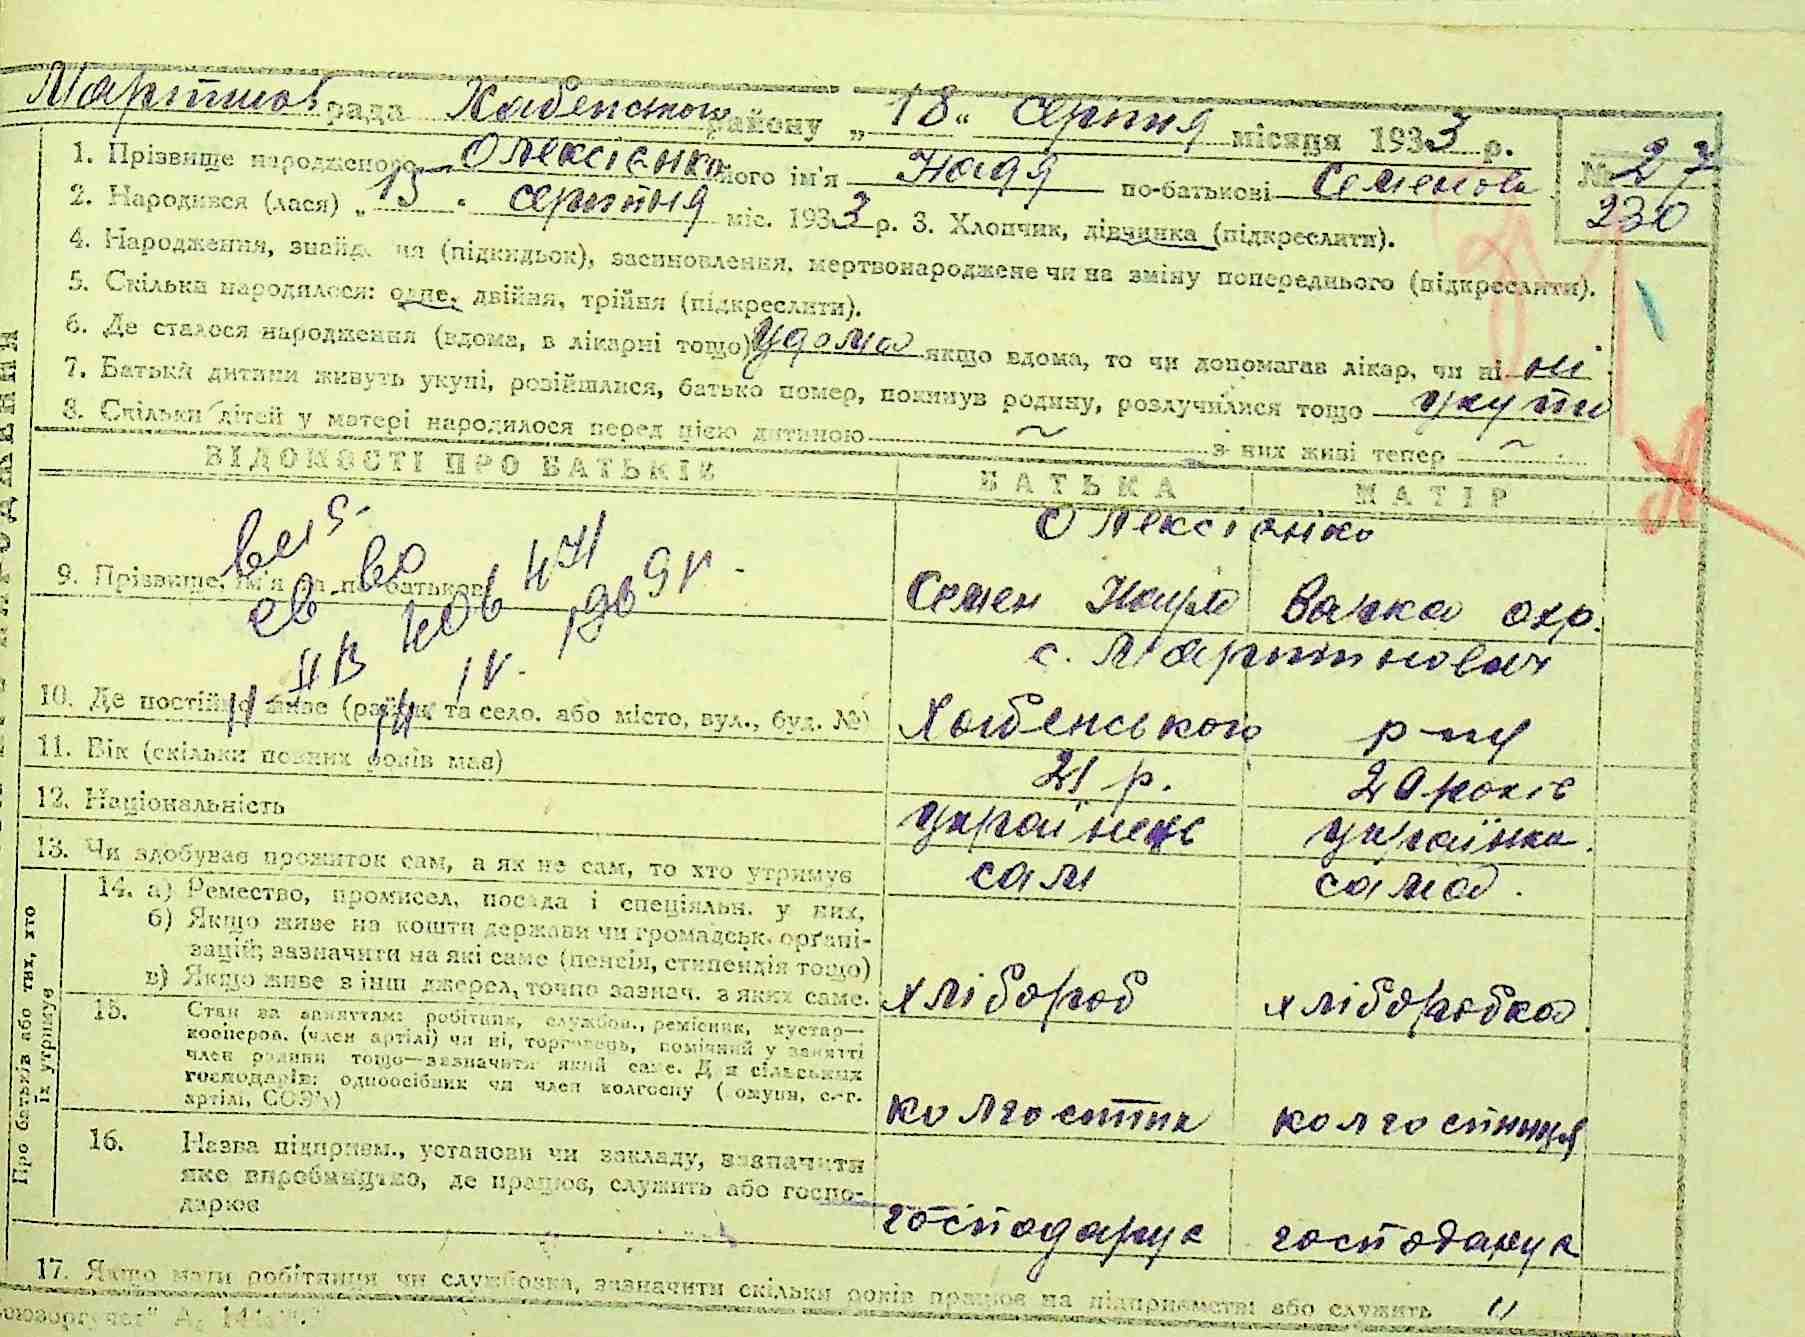 Мартинов рада Хабенського району „18" серпня місяця 1933 р.
№ 27
230
1. Прізвище народженого Олексієнко його ім'я Надя по-батькові Семенов
2. Народився (лася) „15" серпня міс. 1933 р. 3. Хлопчик, дівчинка (підкреслити).
4. Народження, знайд ня (підкидьок), засиновлення, мертвонароджене чи на зміну попереднього (підкреслити).
5. Скільки народилося: одне, двійня, трійня (підкреслити).
6. Де сталося народження (вдома, в лікарні тощо) удома якщо вдома, то чи допомагав лікар, чи ні ні
7. Батьки дитини живуть укупі, розійшлися, батько помер, покинув родину, розлучилися тощо укупи
8. Скільки дітей у матері народилося перед цією дитиною ~ з них живі тепер ~
ВІДОМОСТІ ПРО БАТЬКІВ
БАТЬКА
МАТІР
Олексієнко
9. Прізвище, ім'я та по-батькові
Семен Кирл
Вачка охр.
с. Мартинович
10. Де постійно живе (район та село, або місто, вул., буд. №)
Хабенського р-ну
11. Вік (скільки повних років має)
21 р.
20 років
12. Національність
українець
українка.
13. Чи здобуває прожиток сам, а як не сам, то хто утримує
сам
сама.
Про батьків або тих, хто їх утримує
14. а) Ремество, промисел, посада і спеціяльн. у них,
б) Якщо живе на кошти держави чи громадськ. орґані-
зацій, зазначити на які саме (пенсія, стипендія тощо)
в) Якщо живе з інш джерел, точно зазнач. з яких саме.
хлібороб
хліборобка
15. Стан за заняттям: робітник, службов., ремісник, кустар—
кооперов. (член артілі) чи ні, торговець, помічний у занятті
член родини тощо—зазначити який саме. Д я сільських
господарів: одноосібник чи член колгоспу ( омуни, с.-г.
артілі, СОЗ'у)
колгоспник
колгоспниця
16. Назва підприєм., установи чи закладу, зазначити
яке виробництво, де працює, служить або госпо-
дарює
господарує
господарує
17. Якщо мати робітниця чи службовка, зазначити скільки років працює на підприємстві або служить "